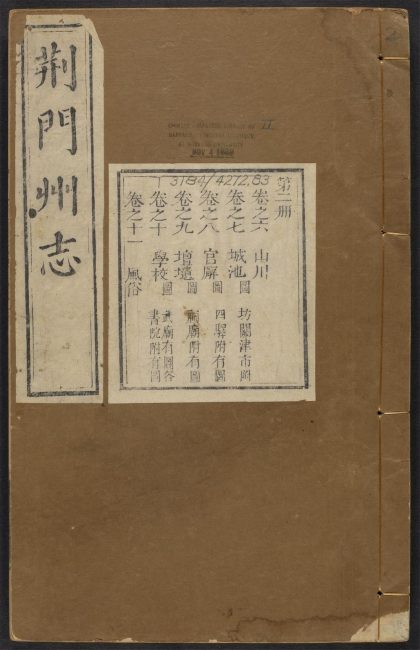 荆門州志
第二册
卷之六 山川
卷之七 城池圖 坊關津市圖
卷之八 官廨圖 四驛附有圖
卷之九 壇壝圖 祠廟附有圖
卷之十 學校圖 武廟有圖各書院附有圖
卷之十一 風俗
T 3184/4272.83
II
NOV 4 1938